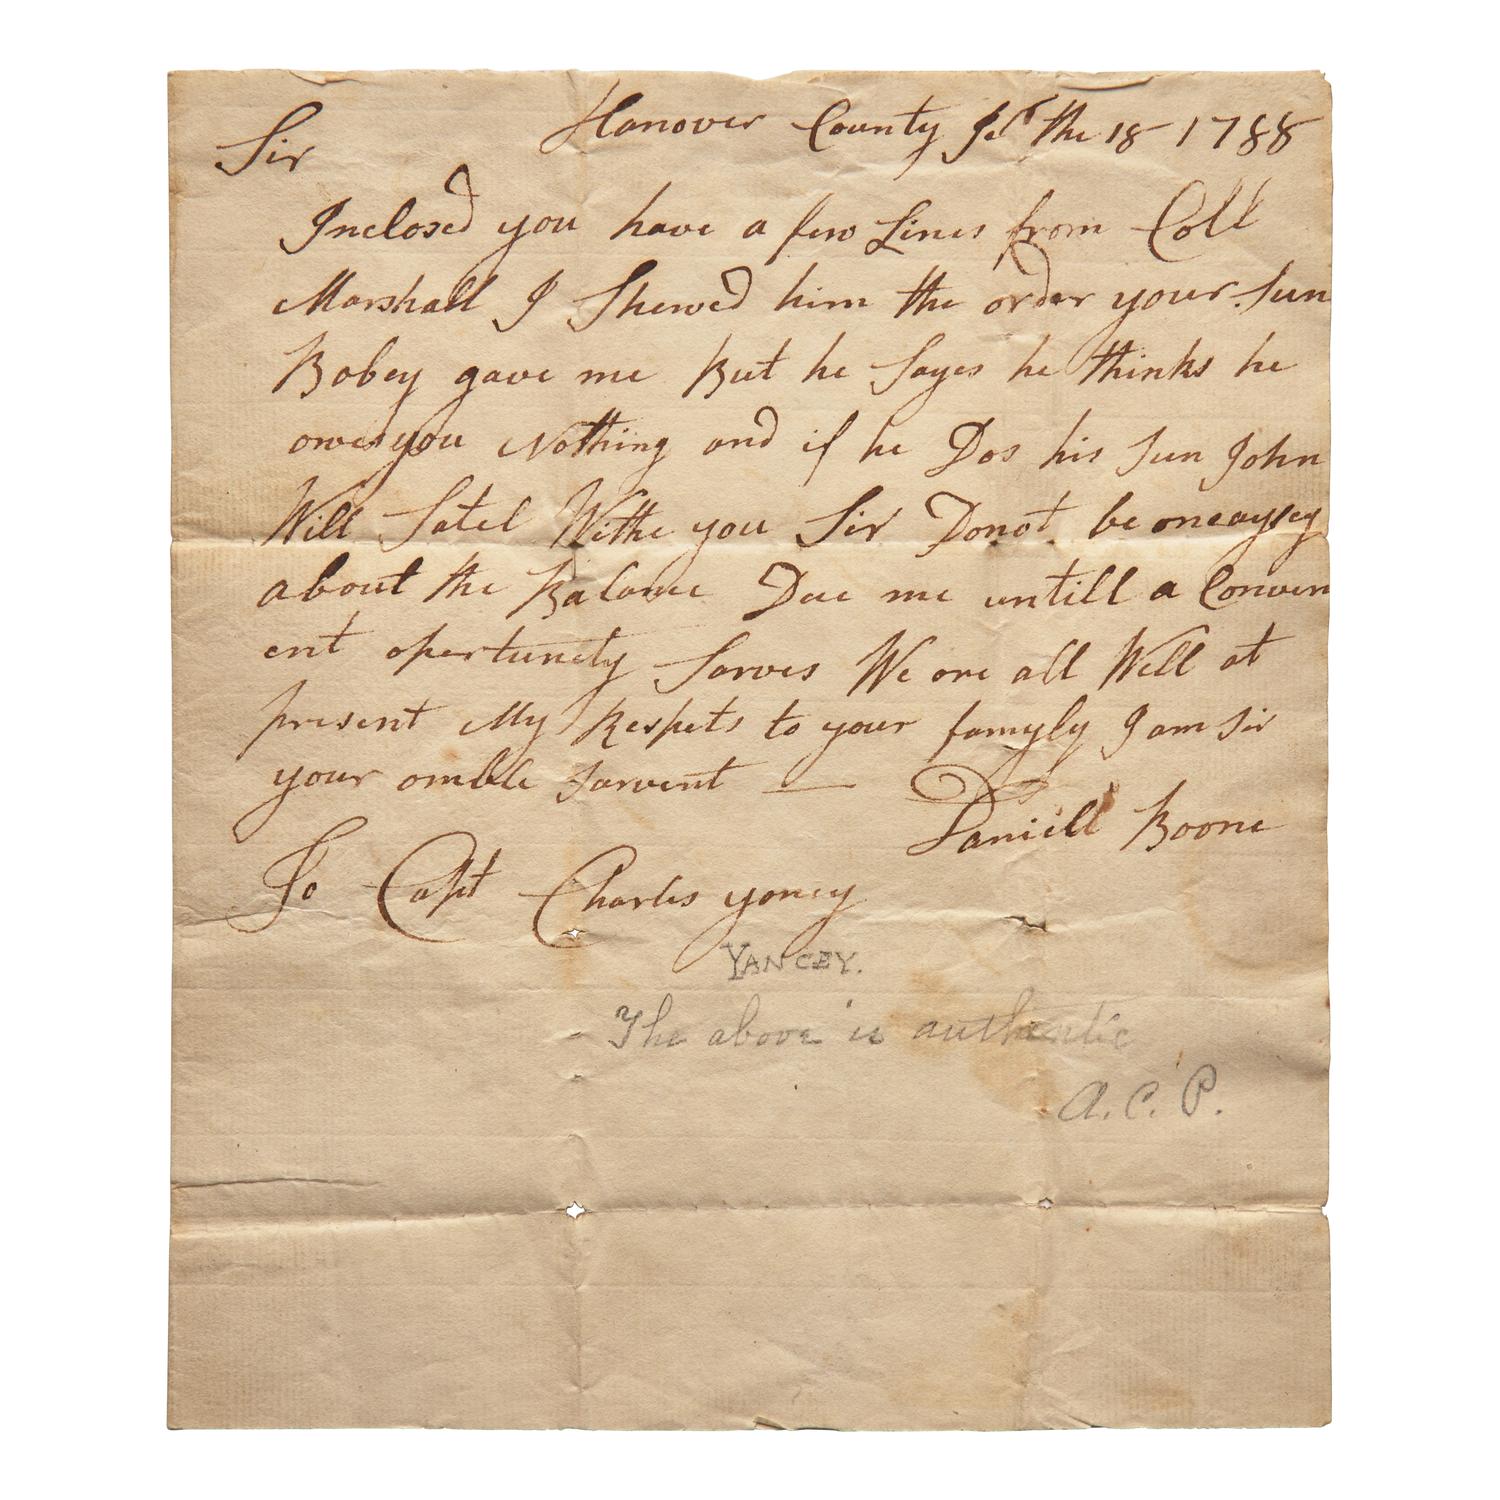 Hanover County Feb the 18 1788
Sir
Inclosed you have a few Lines from Coll
Marshall I Shewed him the order your Sun
Bobey gave me But he Sayes he thinks he
owes you Nothing and if he Dos his Sun John
Will Satel Withe you Sir Donot be oneaysey
about the Balance Due me untill a Conven
ent opertunety Sarves We are all Well at
present My Respets to your famyly I am Sir
your omble Sarvent —
Daniell Boone
To Capt Charles yancy
YANCEY.
The above is authentic
A. C. P.